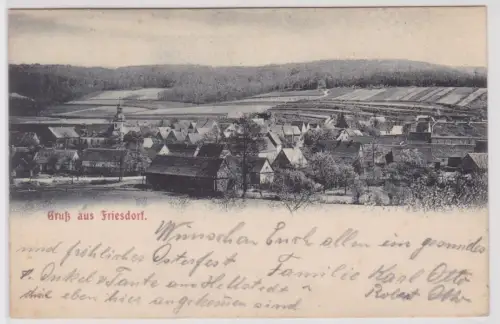 Gruß aus Friesdorf.
Wünschen Euch allen ein gesundes
und fröhliches Osterfest Familie Karl Otto
Onkel u Tante aus Hettstedt Robert Otto
eben hier angekommen sind